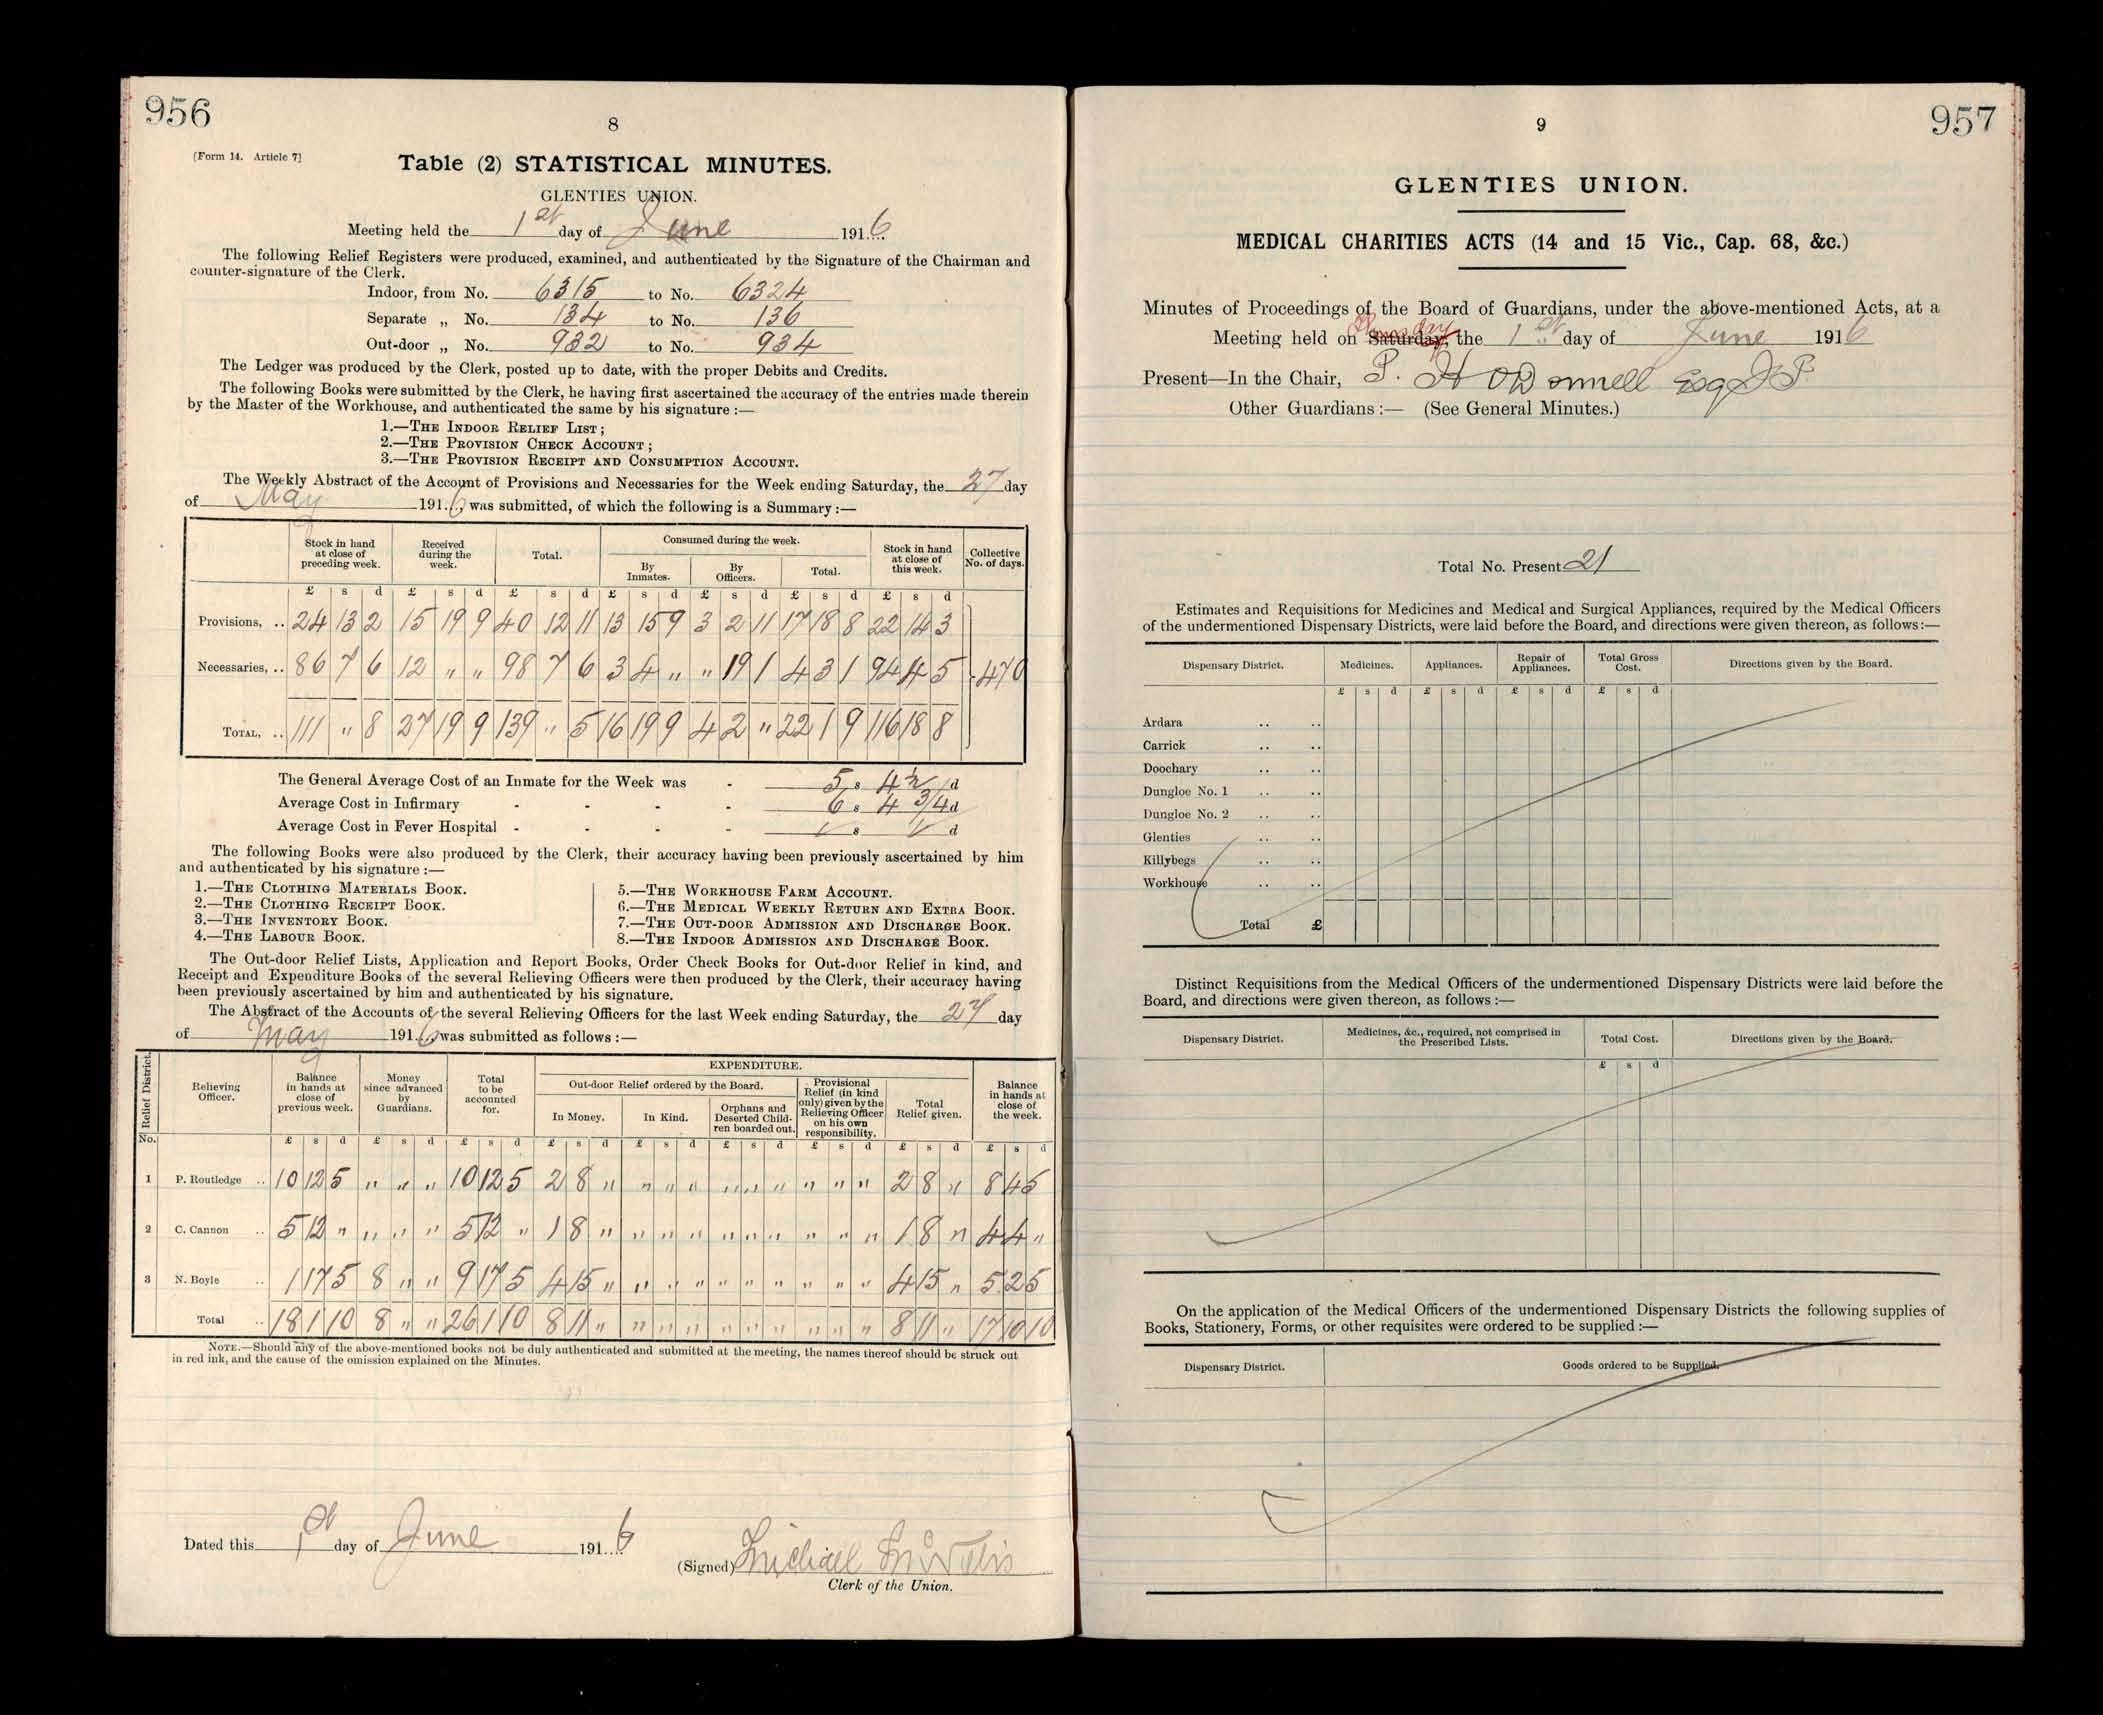 956
8
[Form 14. Article 7]
Table (2) STATISTICAL MINUTES.
GLENTIES UNION.
Meeting held the 1st day of June 1916
The following Relief Registers were produced, examined, and authenticated by the Signature of the Chairman and
counter-signature of the Clerk.
Indoor, from No. 6315 to No. 6324
Separate „ No. 134 to No. 136
Out-door „ No. 932 to No. 934
The Ledger was produced by the Clerk, posted up to date, with the proper Debits and Credits.
The following Books were submitted by the Clerk, he having first ascertained the accuracy of the entries made therein
by the Master of the Workhouse, and authenticated the same by his signature :—
1.—THE INDOOR RELIEF LIST;
2.—THE PROVISION CHECK ACCOUNT;
3.—THE PROVISION RECEIPT AND CONSUMPTION ACCOUNT.
The Weekly Abstract of the Account of Provisions and Necessaries for the Week ending Saturday, the 27 day
of May 1916, was submitted, of which the following is a Summary :—
Stock in hand at close of preceding week. Received during the week. Total. Consumed during the week. Stock in hand at close of this week. Collective No. of days.
By Inmates. By Officers. Total.
£ s d £ s d £ s d £ s d £ s d £ s d £ s d
Provisions, .. 24 13 2 15 19 9 40 12 11 13 15 9 3 2 11 17 18 8 22 14 3
Necessaries, .. 86 7 6 12 " " 98 7 6 3 4 " " 19 1 4 3 1 94 4 5 470
TOTAL, .. 111 " 8 27 19 9 139 " 5 16 19 9 4 2 " 22 1 9 116 18 8
The General Average Cost of an Inmate for the Week was - 5 s 4½ d
Average Cost in Infirmary - - - - 6 s 4 3/4 d
Average Cost in Fever Hospital - - - - s d
The following Books were also produced by the Clerk, their accuracy having been previously ascertained by him
and authenticated by his signature :—
1.—THE CLOTHING MATERIALS BOOK.
2.—THE CLOTHING RECEIPT BOOK.
3.—THE INVENTORY BOOK.
4.—THE LABOUR BOOK.
5.—THE WORKHOUSE FARM ACCOUNT.
6.—THE MEDICAL WEEKLY RETURN AND EXTRA BOOK.
7.—THE OUT-DOOR ADMISSION AND DISCHARGE BOOK.
8.—THE INDOOR ADMISSION AND DISCHARGE BOOK.
The Out-door Relief Lists, Application and Report Books, Order Check Books for Out-door Relief in kind, and
Receipt and Expenditure Books of the several Relieving Officers were then produced by the Clerk, their accuracy having
been previously ascertained by him and authenticated by his signature.
The Abstract of the Accounts of the several Relieving Officers for the last Week ending Saturday, the 27 day
of May 1916, was submitted as follows :—
Relief District. Relieving Officer. Balance in hands at close of previous week. Money since advanced by Guardians. Total to be accounted for. EXPENDITURE. Balance in hands at close of the week.
Out-door Relief ordered by the Board. Provisional Relief (in kind only) given by the Relieving Officer on his own responsibility. Total Relief given.
In Money. In Kind. Orphans and Deserted Children boarded out.
No. £ s d £ s d £ s d £ s d £ s d £ s d £ s d £ s d £ s d
1 P. Routledge .. 10 12 5 " " " 10 12 5 2 8 " " " " " " " " " " 2 8 " 8 4 5
2 C. Cannon .. 5 12 " " " " 5 12 " 1 8 " " " " " " " " " " 1 8 " 4 4 "
3 N. Boyle .. 1 17 5 8 " " 9 17 5 4 15 " " " " " " " " " " 4 15 " 5 2 5
Total .. 18 1 10 8 " " 26 1 10 8 11 " " " " " " " " " " 8 11 " 17 10 10
NOTE.—Should any of the above-mentioned books not be duly authenticated and submitted at the meeting, the names thereof should be struck out
in red ink, and the cause of the omission explained on the Minutes.
Dated this 1st day of June 1916
(Signed) Michael
Clerk of the Union.
957
9
GLENTIES UNION.
MEDICAL CHARITIES ACTS (14 and 15 Vic., Cap. 68, &c.)
Minutes of Proceedings of the Board of Guardians, under the above-mentioned Acts, at a
Thursday
Meeting held on Saturday, the 1st day of June 1916
Present—In the Chair, P. H O'Donnell Esq J P.
Other Guardians :— (See General Minutes.)
Total No. Present 21
Estimates and Requisitions for Medicines and Medical and Surgical Appliances, required by the Medical Officers
of the undermentioned Dispensary Districts, were laid before the Board, and directions were given thereon, as follows:—
Dispensary District. Medicines. Appliances. Repair of Appliances. Total Gross Cost. Directions given by the Board.
£ s d £ s d £ s d £ s d
Ardara .. ..
Carrick .. ..
Doochary .. ..
Dungloe No. 1 .. ..
Dungloe No. 2 .. ..
Glenties .. ..
Killybegs .. ..
Workhouse .. ..
Total £
Distinct Requisitions from the Medical Officers of the undermentioned Dispensary Districts were laid before the
Board, and directions were given thereon, as follows :—
Dispensary District. Medicines, &c., required, not comprised in the Prescribed Lists. Total Cost. Directions given by the Board.
£ s d
On the application of the Medical Officers of the undermentioned Dispensary Districts the following supplies of
Books, Stationery, Forms, or other requisites were ordered to be supplied :—
Dispensary District. Goods ordered to be Supplied.